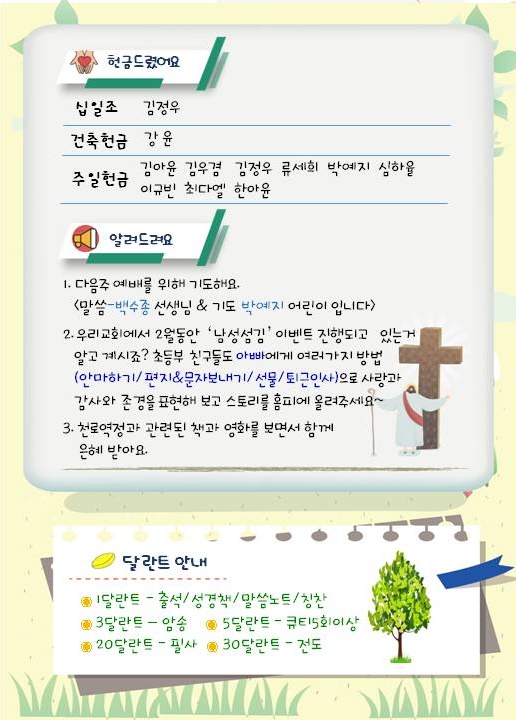 헌금드렸어요
십일조 김정우
건축헌금 강윤
주일헌금 김아윤 김우겸 김정우 류세희 박예지 심하율
이규빈 최다엘 한아윤
알려드려요
1. 다음주 예배를 위해 기도해요.
<말씀-백수종 선생님 & 기도 박예지 어린이 입니다>
2. 우리교회에서 2월동안 ‘남성섬김’ 이벤트 진행되고 있는거
알고 계시죠? 초등부 친구들도 아빠에게 여러가지 방법
(안마하기/편지&문자보내기/선물/퇴근인사)으로 사랑과
감사와 존경을 표현해 보고 스토리를 홈피에 올려주세요~
3. 천로역정과 관련된 책과 영화를 보면서 함께
은혜 받아요.
달란트 안내
1달란트 - 출석/성경책/말씀노트/칭찬
3달란트 - 암송 5달란트 - 큐티5회이상
20달란트 - 필사 30달란트 - 전도